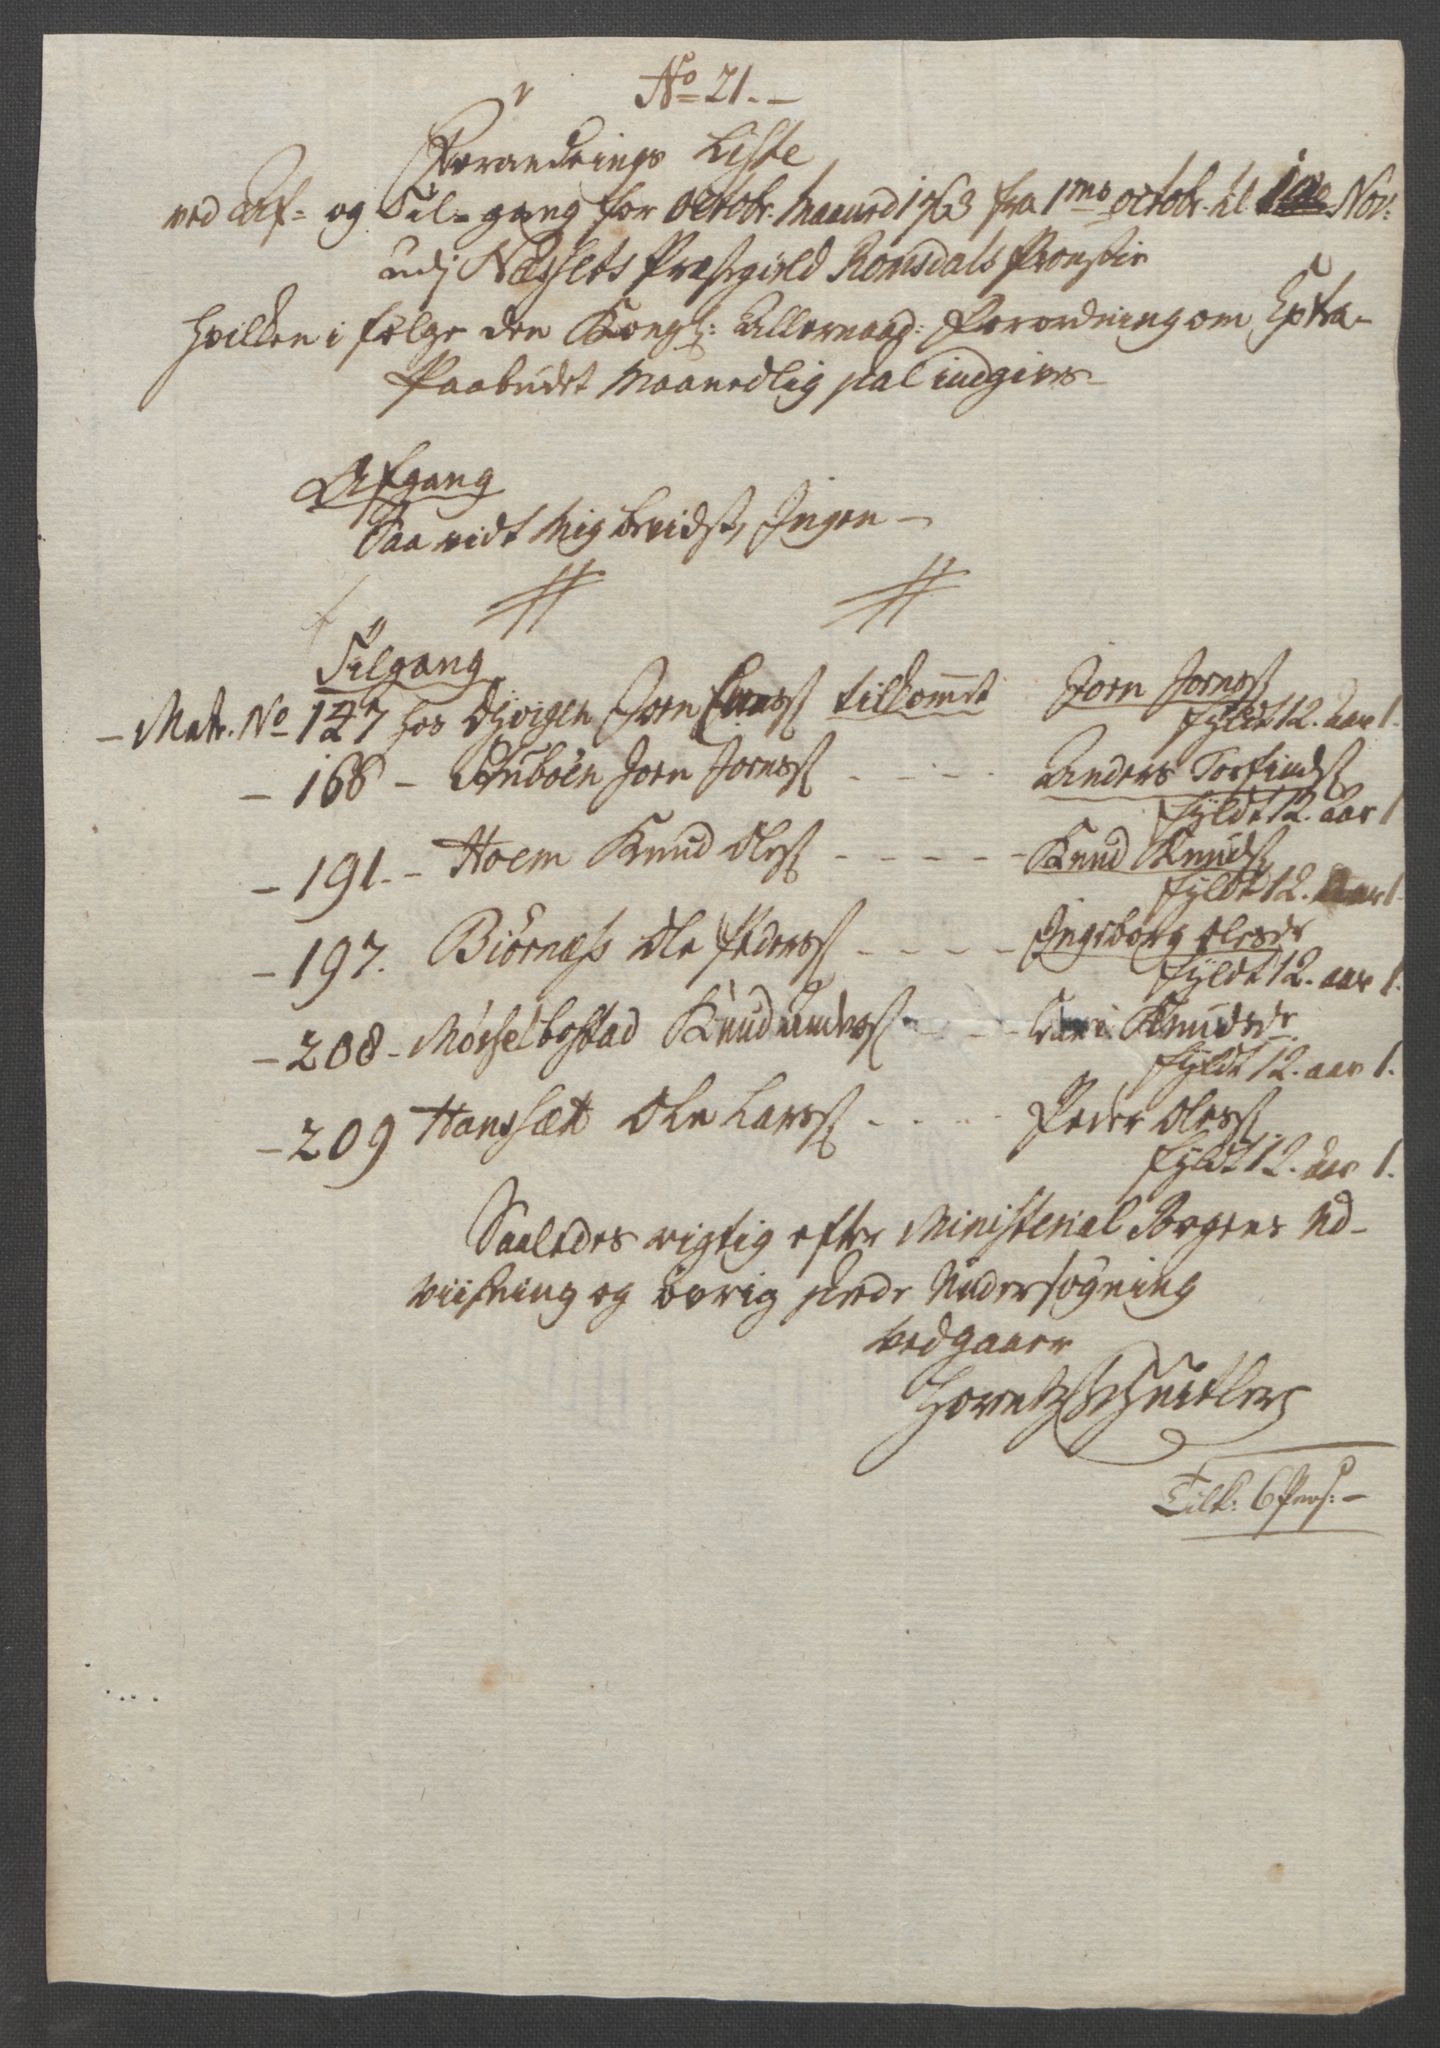 No 21.-
Forandrings Liste
ved Af- og Til-gang for Octobr. Maaned 1763 fra 1mo Octobr. til Nov:
udj Næssets Præstegield Romsdals Provstie
Hvilken i følge den Kongl: Allernaad: Forordning om Extra-
Paabudet Maanedlig skal indgives
Afgang
Saa vidt Mig bevidst, Ingen -
Tilgang
- Matr. No 147 hos Ejvigen Joen tilkommet Joen Jonss
fyldt 12. aar 1.
- 168 - Stuboen Joen Jonss - - - - Anders Torfinds
fyldt 12. aar 1
- 191. - Hoem Knud Oless - - - - - Knud Knuds
fyldt 12. aar 1.
- 197. Biørnæss Ole Peders - - - - Ingeborg Olesdr
fyldt 12. aar 1.
- 208 - Mósselbostad Knud Anders - - - Knudsdr
fyldt 12. aar 1.
- 209 Hanssæt Ole Larss - - - - Peder Oless
fyldt 12. aar 1.
Saaledes rigtig efter Ministerial Bogens Ud-
viisning og övrig skede Undersøgning
vedgaaer
Lorentz Schnitler
Tilk: 6 Pers: -